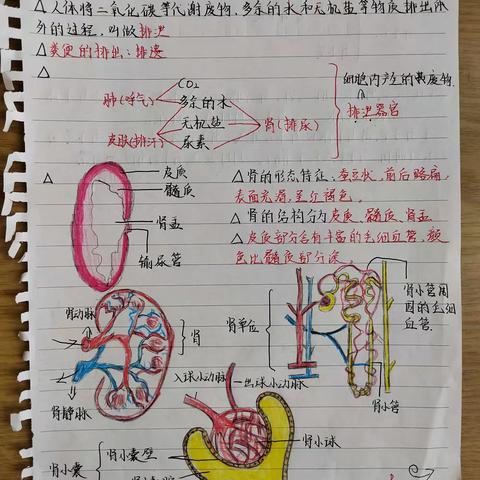 △人体将二氧化碳等代谢废物,多余的水和无机盐等物质排出体
外的过程,叫做排泄
△粪便的排出:排遗
△
CO2
肺(呼气)
多余的水
无机盐
肾(排尿)
皮肤(排汗)
尿素
细胞内产生的
废物
排泄器官
△
皮质
髓质
肾盂
输尿管
△肾的形态特征:蚕豆状,前后略扁,
表面光滑,呈红褐色。
△肾的结构分为皮质、髓质、肾盂
△皮质部分含有丰富的毛细血管,颜
色比髓质部分深。
肾动脉
肾
肾静脉
肾单位
肾小管周
围的毛细
血管
肾小管
入球小动脉
出球小动脉
肾小球
肾小囊
肾小囊壁